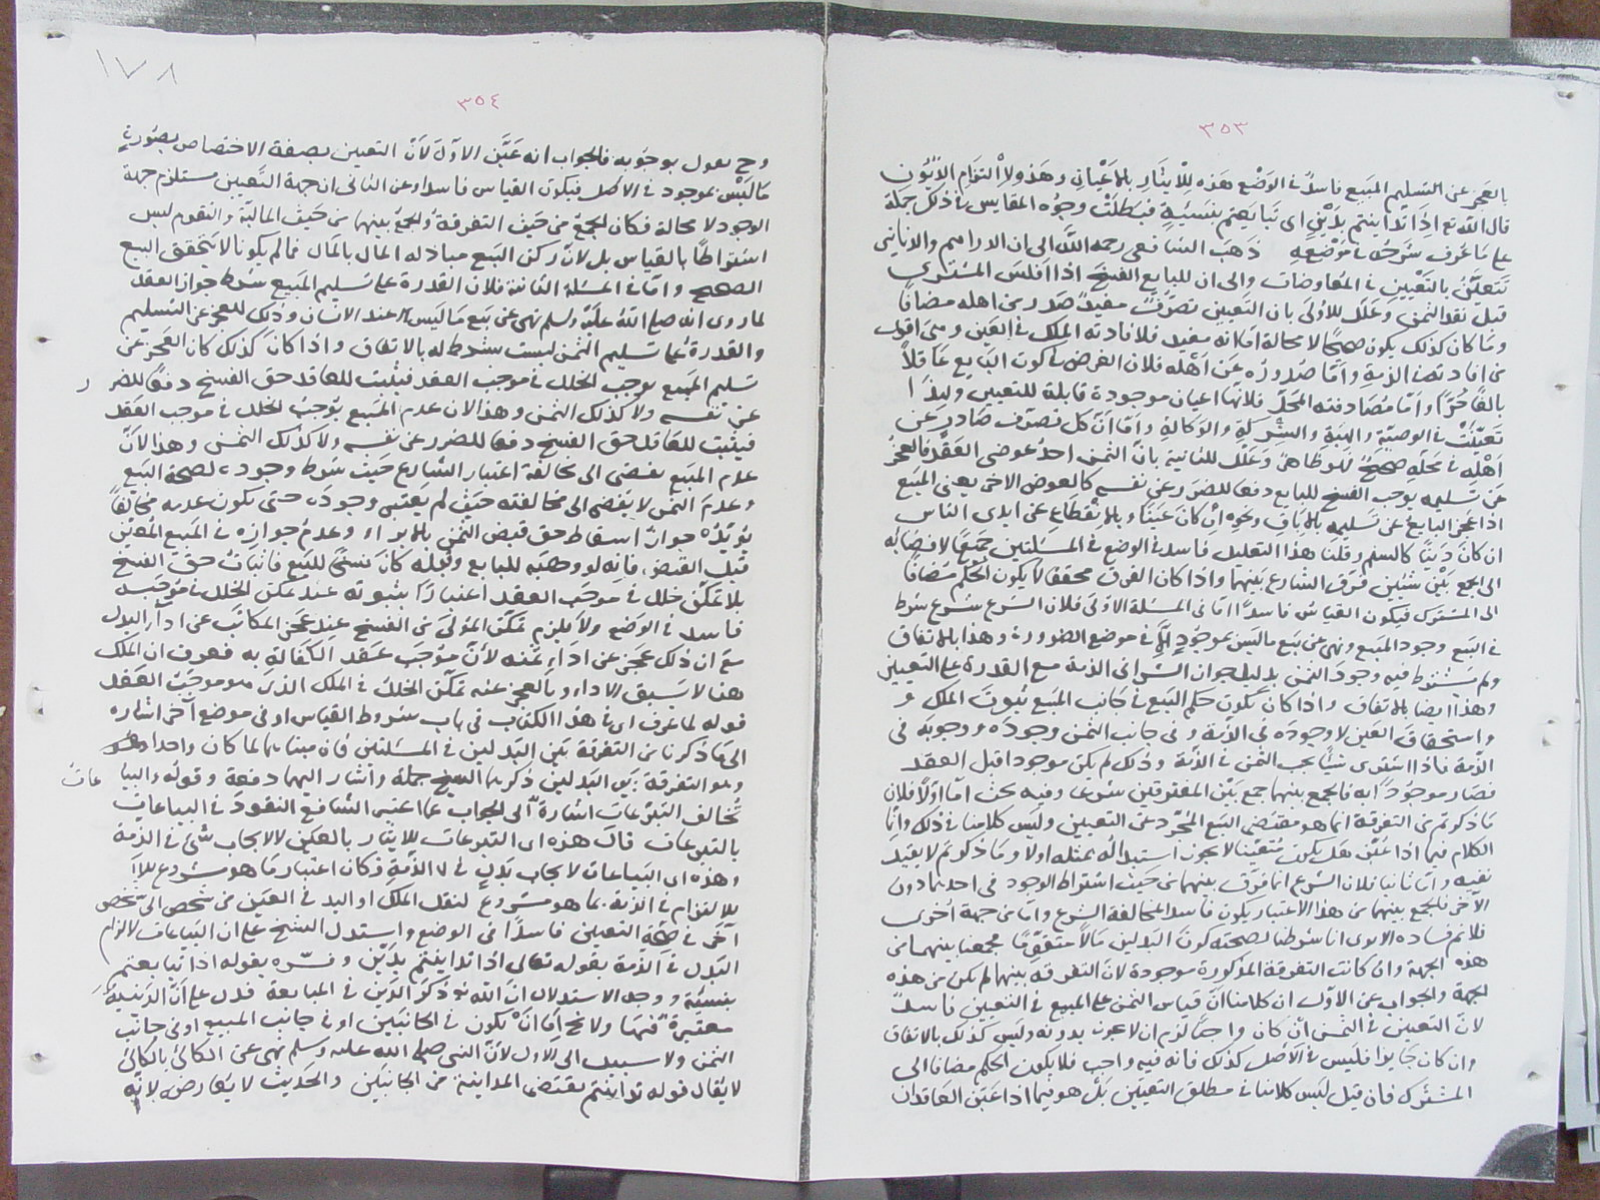 ٣٥٣
بالعجز عن التسليم المبيع فاسدًا في الوضع هذه للايثار بالاعيان وهذه لالتزام الديون
قال الله تع اذا تداينتم بدين اى تبايعتم بنسيئة فبطلت وجوه المقايس في ذلك جملة
على ما عرف شرحه في موضعه ذهب الشافعى رحمه الله الى ان الدراهم والدنانير
تتعين بالتعيين في المعاوضات والى ان للبايع الفسخ اذا افلس المشترى
قبل نقد الثمن وعلل للاولى بان التعيين تصرف مفيد صدر من اهله مضافًا
وما كان كذلك يكون صحيحًا لا محالة اما انه مفيد فلافادته الملك في العين وهى اقوى
من افادته في الذمة واما صدوره عن اهله فلان الفرض كون البايع عاقلًا
بالغًا حرًا واما مصادفته المحل فلانها اعيان موجودة قابلة للتعيين ولهذا
تعينت في الوصية والهبة والشركة والوكالة واما ان كل تصرف صادر عن
اهله في محله صحيح فهو ظاهر وعلل للثانية بان الثمن احد عوضى العقد فالعجز
عن تسليمه يوجب الفسخ للبايع دفعا للضرر عن نفسه كالعوض الاخر يعنى المبيع
اذا عجز البايع عن تسليمه بالاباق ونحوه ان كان عينًا وبالانقطاع عن ايدى الناس
ان كان دينًا كالسلم وقلنا هذا التعليل فاسد في الوضع في المسئلتين جميعًا لافضائه
الى الجمع بين شيئين فرق الشارع بينهما واذا كان الفرق محققًا لا يكون الحكم مضافًا
الى المشترك فيكون القياس فاسدًا اما في المسئلة الاولى فلان الشرع شرع شرط
في البيع وجود المبيع ونهى عن بيع ما ليس بموجود الا في موضع الضرورة وهذا بالاتفاق
ولم يشترط فيه وجود الثمن بدليل جواز الشراء في الذمة مع القدرة على التعيين
وهذا ايضا بالاتفاق واذا كان يكون حكم البيع في جانب المبيع ثبوت الملك و
واستحقاق العين لا وجوده في الذمة وفي جانب الثمن وجوده ووجوبه في
الذمة فاذا اشترى شيئًا يجب الثمن في الذمة وذلك لم يكن موجودا قبل العقد
فصار موجودًا به فالجمع بينهما جمع بين المفترقين شرعا وفيه بحث اما اولًا فلان
ما ذكرتم من التفرقة انما هو مقتضى البيع المجرد عن التعيين وليس كلامنا في ذلك وانما
الكلام فيما اذا عين هل يكون متعينا لا يجوز استبداله بمثله اولا وما ذكرتم لا يفيد
نفيه واما ثانيا فلان الشرع انما فرق بينهما من حيث اشتراط الوجود في احدهما دون
الآخر فالجمع بينهما من هذا الاعتبار يكون فاسدا لمخالفة الشرع واما من جهة اخرى
فلا نم فساده الا يرى انا شرطنا لصحته كون البدلين مالًا متقومًا فجمعنا بينهما من
هذه الجهة وان كانت التفرقة المذكورة موجودة لان التفرقة بينهما لم تكن من هذه
الجهة والجواب عن الاول ان كلامنا ان قياس الثمن على المبيع في التعيين فاسد
لان التعيين في الثمن ان كان واجبًا لزم ان لا يجوز بدونه وليس كذلك بالاتفاق
وان كان جايزا فليس في الاصل كذلك فانه فيه واجب فلا يكون الحكم مضافا الى
المشترك فان قيل ليس كلامنا في مطلق التعيين بل هو فيما اذا عين العاقدان
١٧٨
٣٥٤
وح نقول بوجوبه فالجواب انه عين الاول لان التعيين بصفة الاختصاص بصورة
ما ليس بموجود في الاصل فيكون القياس فاسدا وعن الثانى ان جهة التعيين مستلزم جهة
الوجود لا محالة فكان الجمع من حيث التفرقة والجمع بينهما من حيث المالية والتقوم ليس
اشتراطًا بالقياس بل لان ركن البيع مبادلة المال بالمال فما لم يكونا لا يتحقق البيع
الصحيح واما في المسئلة الثانية فلان القدرة على تسليم المبيع شرط جواز العقد
لما روى انه صلى الله عليه وسلم نهى عن بيع ما ليس عند الانسان وذلك للعجز عن التسليم
والقدرة على تسليم الثمن ليست بشرط له بالاتفاق واذا كان كذلك كان العجز عن
تسليم المبيع يوجب الخلل في موجب العقد فيثبت للعاقد حق الفسخ دفعًا للضرر
عن نفسه ولا كذلك الثمن وهذا لان عدم المبيع يوجب الخلل في موجب العقد
فيثبت للعاقد حق الفسخ دفعا للضرر عن نفسه ولا كذلك الثمن وهذا لان
عدم المبيع يفضى الى مخالفة اعتبار الشارع حيث شرط وجوده لصحة البيع
وعدم الثمن لا يفضى الى مخالفته حيث لم يعتبر وجوده حتى يكون عدمه مخالفًا
يؤيده جواز اسقاط حق قبض الثمن بالابراء وعدم جوازه في المبيع المعين
قبل القبض فانه لو وهبه للبايع وقبله كان فسخًا للبيع فاثبات حق الفسخ
بلا تمكن خلل في موجب العقد اعتبارًا بثبوته عند تمكن الخلل في موجبه
فاسد في الوضع ولا يلزم تمكن المولى من الفسخ عند عجز المكاتب عن اداء البدل
مع ان ذلك عجز عن اداء ثمنه لان موجب عقد الكفالة به فعرف ان الملك
هنا لا يسبق الاداء وبالعجز عنه تمكن الخلل في الملك الذى هو موجب العقد
قوله لما عرف اى في هذا الكتاب في باب شروط القياس او في موضع آخر اشارة
الى ما ذكرنا من التفرقة بين البدلين في المسئلتين فان مبناهما لما كان واحدا وهو
وهو التفرقة بين البدلين ذكرهما الشيخ جملة واشار اليهما دفعة وقوله والبياعات
تخالف التبرعات اشارة الى الجواب عما اعتبر الشافعى النقود في البياعات
بالتبرعات فان هذه اى التبرعات للايثار بالعين لا لايجاب شئ في الذمة
وهذه اى البياعات لايجاب بدل في الذمة فكان اعتبار ما هو مشروع للا
للالتزام في الذمة بما هو مشروع لنقل الملك او اليد في العين من شخص الى شخص
آخر في صحة التعيين فاسدًا في الوضع واستدل الشيخ على ان البياعات لالزام
البدل في الذمة بقوله تعالى اذا تداينتم بدين وفسره بقوله اذا تبايعتم
بنسيئة ووجه الاستدلال ان الله تع ذكر الدين في المبايعة فدل على ان الدينية
معتبرة فيها ولا يخ اما ان تكون في الجانبين او في جانب المبيع او في جانب
الثمن ولا سبيل الى الاول لان النبى صلى الله عليه وسلم نهى عن الكالئ بالكالئ
لا يقال قوله تداينتم يقتضى المداينة من الجانبين والحديث لا يعارضه لانه